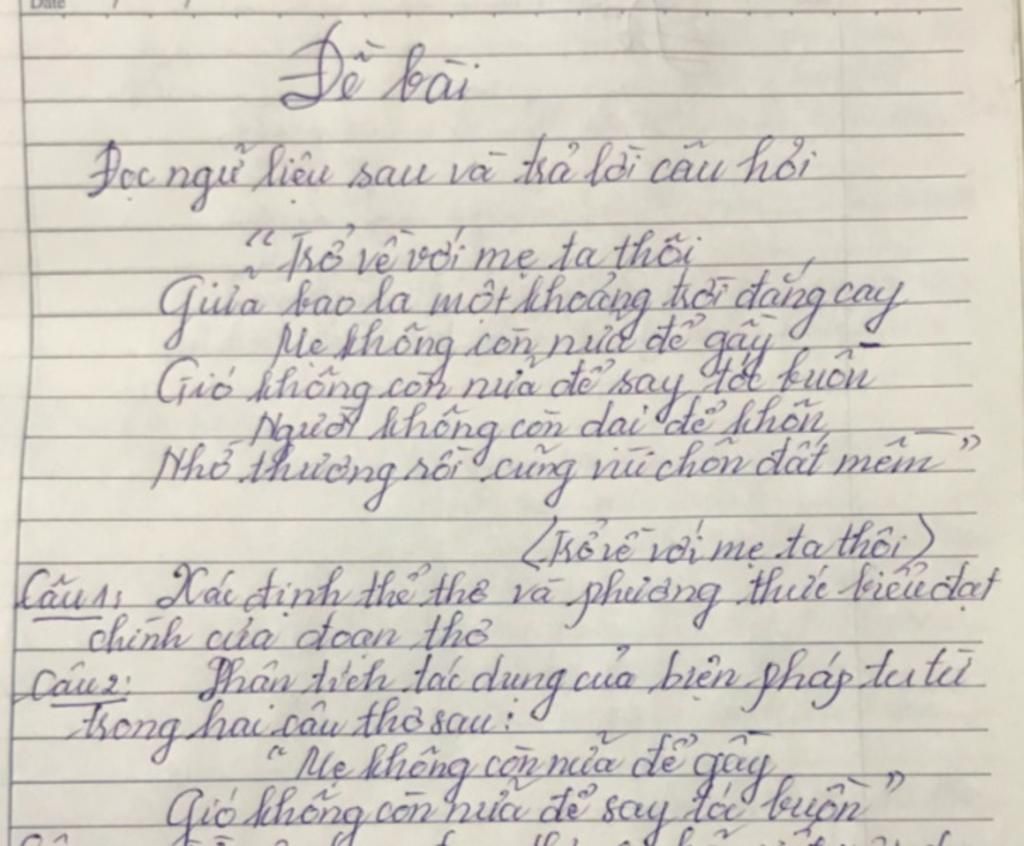 Date / /
Đề bài
Đọc ngữ liệu sau và trả lời câu hỏi
"Trở về với mẹ ta thôi
Giữa bao la một khoảng trời đắng cay
Mẹ không còn nữa để gầy
Gió không còn nữa để say tóc buồn
Người không còn dại để khôn
Nhớ thương rồi cũng vùi chôn đất mềm"
(Trở về với mẹ ta thôi)
Câu 1: Xác định thể thơ và phương thức biểu đạt
chính của đoạn thơ
Câu 2: Phân tích tác dụng của biện pháp tu từ
trong hai câu thơ sau:
"Mẹ không còn nữa để gầy
Gió không còn nữa để say tóc buồn"